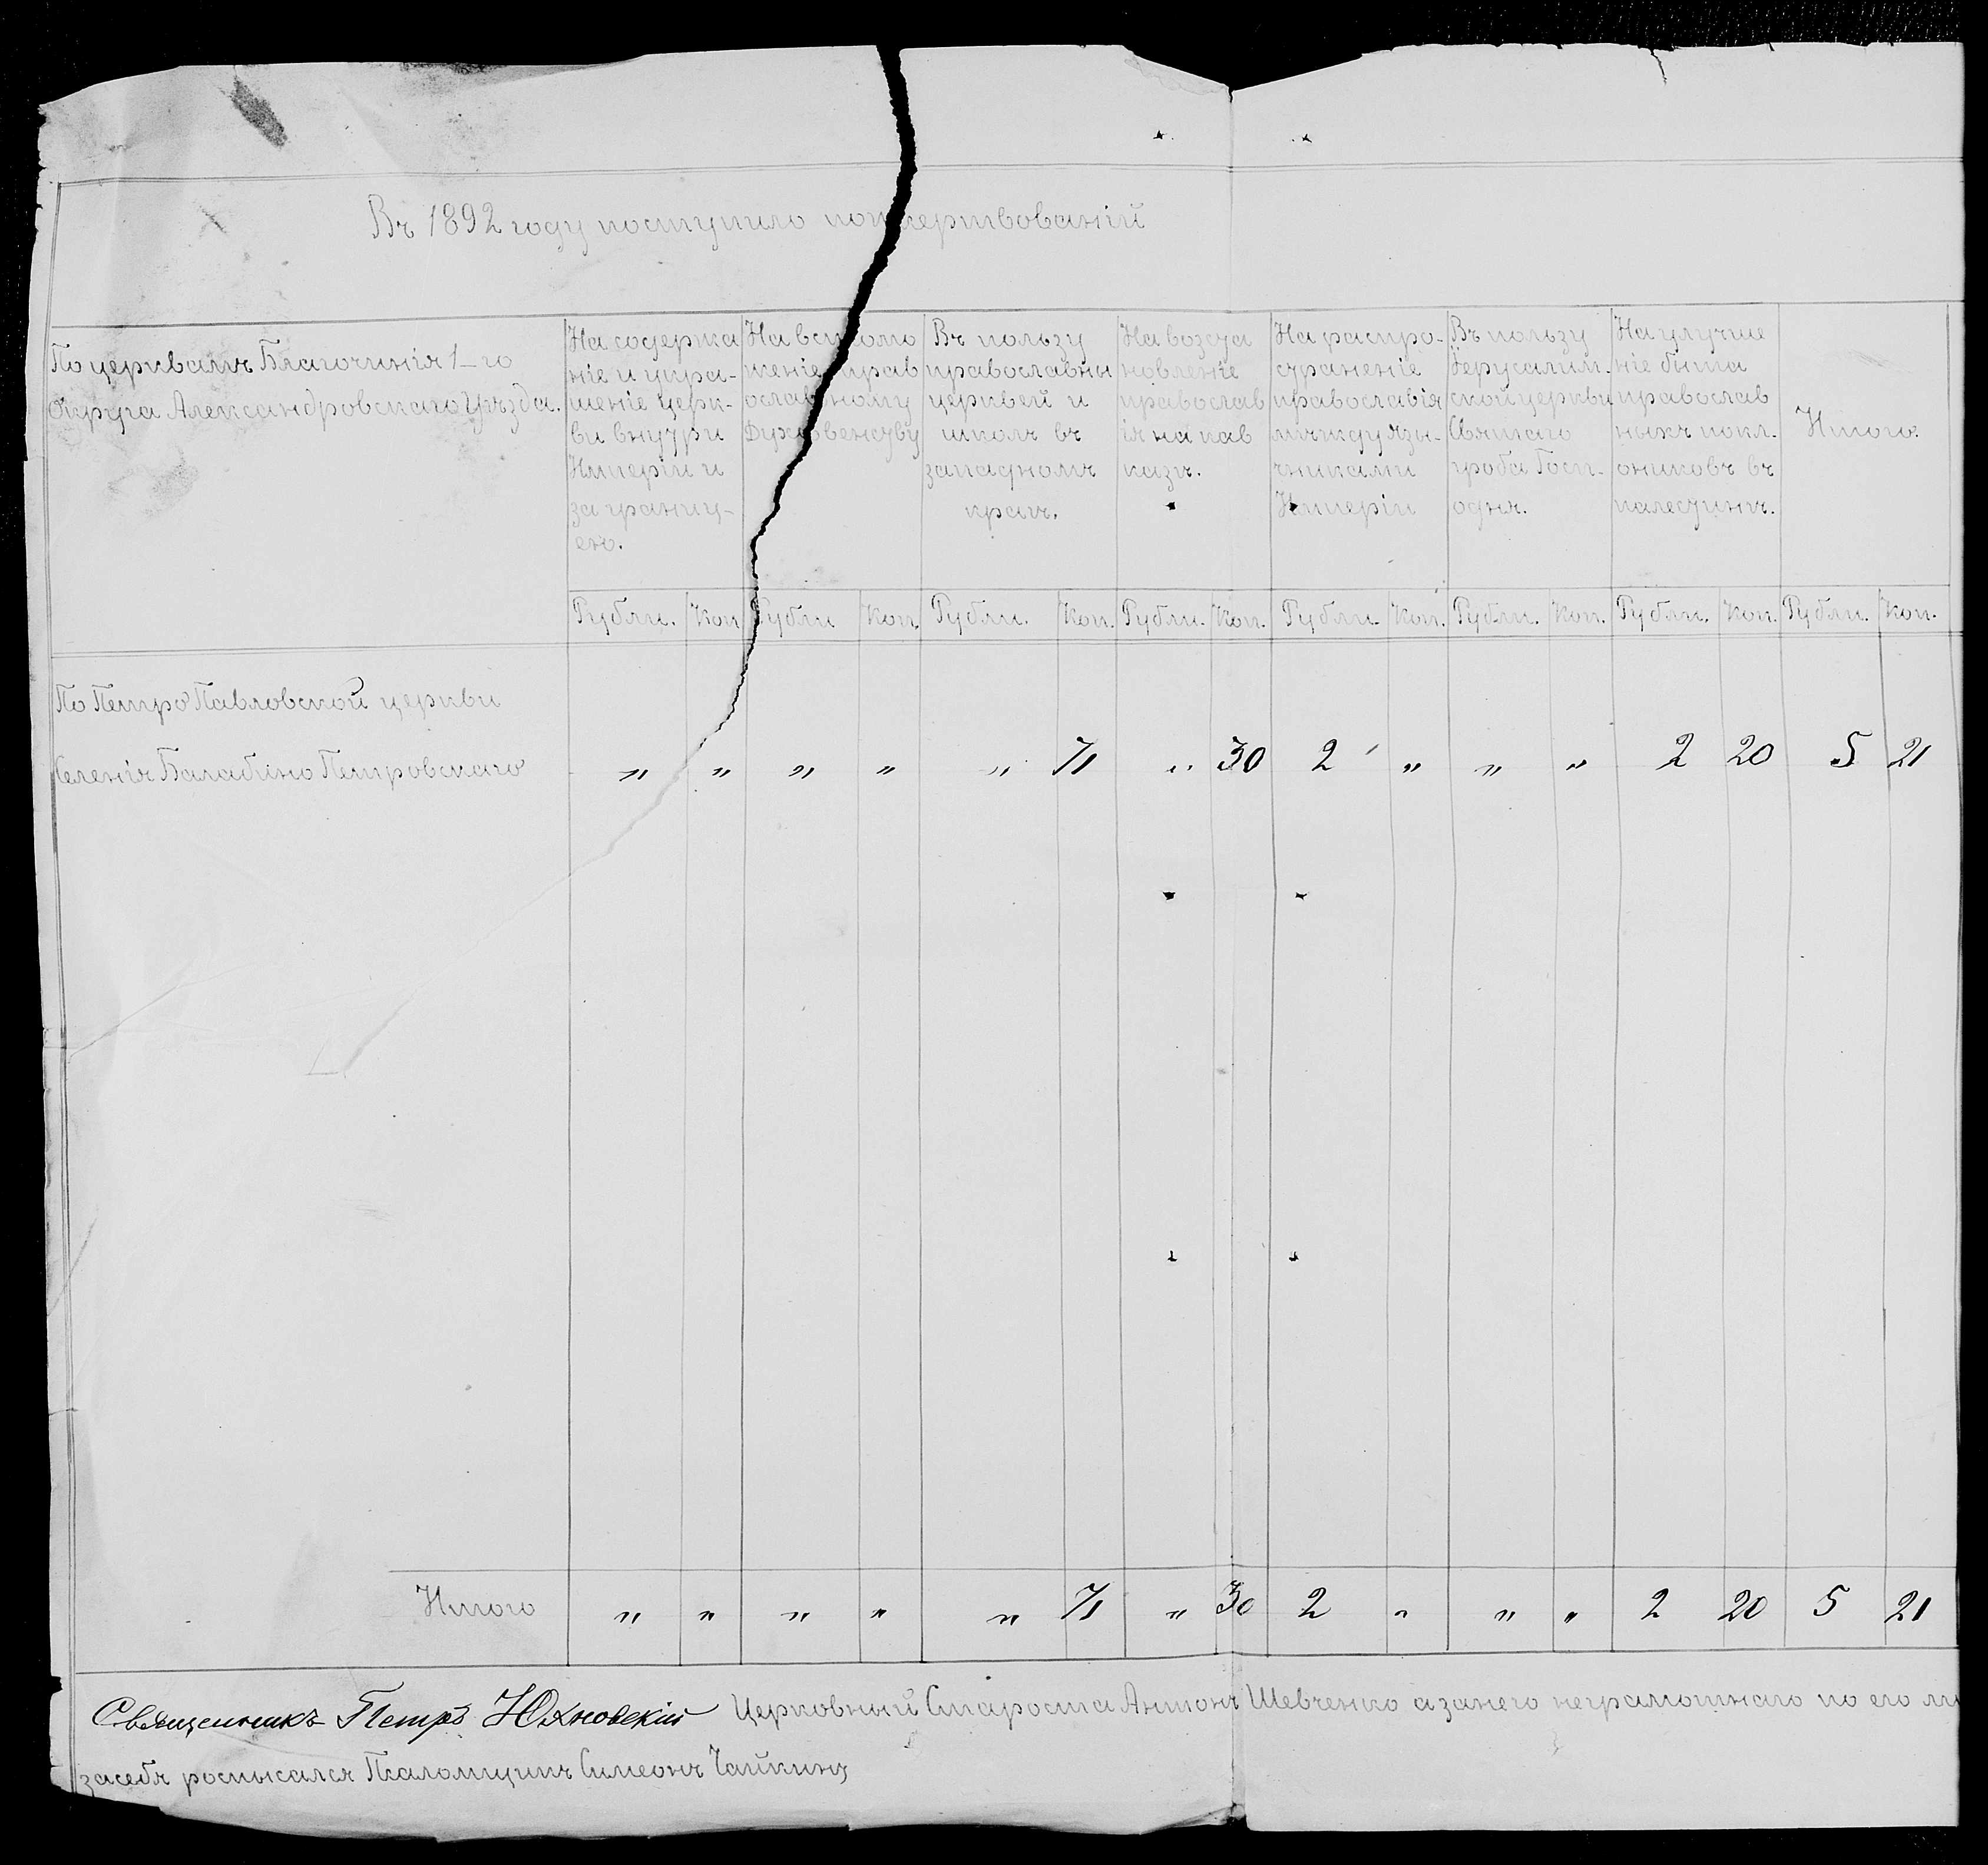 Въ 1892 году поступило пожертвованій
По церквамъ Благочинія 1-го
Округа Александровскаго Уѣзда.
На содержа
ніе и укра-
шеніе церк-
ви внутри
Имперіи и
за границ-
ею.
На вспомо
шеніе прав
ославному
Духовенству
Въ пользу
православны
церквей и
школъ въ
западномъ
краѣ.
На возста
новленіе
православ
ія на кав
казѣ.
На распро-
страненіе
православія
между язы-
чниками
Имперіи
Въ пользу
Іерусалим-
ской церкви
Святаго
гроба Госп-
одня.
На улучше
ніе быта
православ
ныхъ покл.
ониковъ въ
палестинѣ.
Итого.
Рубли. Коп Рубли Коп. Рубли. Коп. Рубли. Коп. Рубли. Коп. Рубли. Коп. Рубли. Коп. Рубли. Коп.
По Петро Павловской церкви
Селенія Балабино Петровскаго " " " " " 71 " 30 2 " " " 2 20 5 21
Итого " " " " " 71 " 30 2 " " " 2 20 5 21
Священникъ Петръ Юхновскій Церковный Староста Антонъ Шевченко а за него неграмотнаго по его
за себя росписался Псаломщикъ Симеонъ Чайкинъ